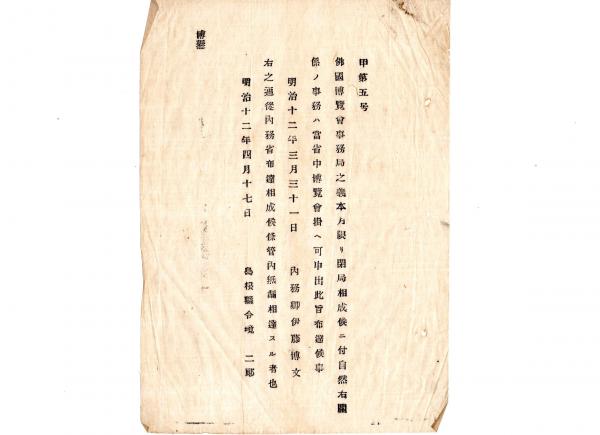 甲第五号
佛國博覽會事務局之義本月限リ閉局相成候ニ付自然右關
係ノ事務ハ當省中博覽會掛ヘ可申出此旨布達候事
明治十二年三月三十一日 內務卿伊藤博文
右之通從內務省布達相成候條管內無漏相達スル者也
明治十二年四月十七日 島根縣令境 二郎
博